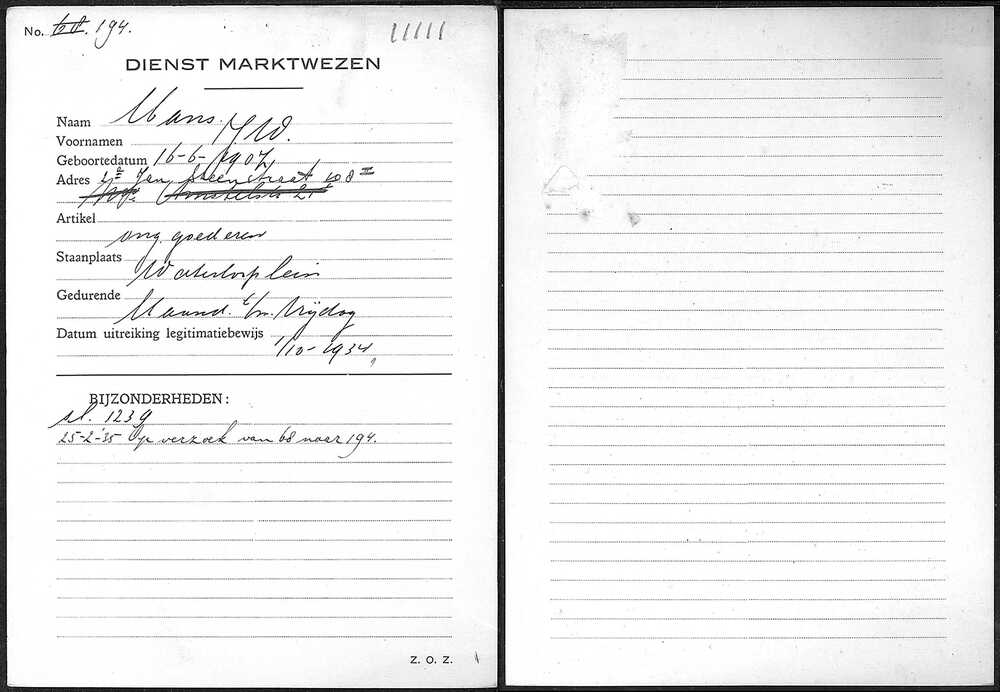 No. 68. 194.
DIENST MARKTWEZEN
Naam Mans.
Voornamen J W.
Geboortedatum 16-6-1907
Adres Jan Steenstraat 108 II
Amstelstr 21
Artikel
ong. goederen
Staanplaats
Waterlooplein
Gedurende
Maand. t/m Vrijdag
Datum uitreiking legitimatiebewijs
1/10-1934
BIJZONDERHEDEN:
sl. 123 g
25-2-'35 Op verzoek van 68 naar 194.
Z. O. Z.